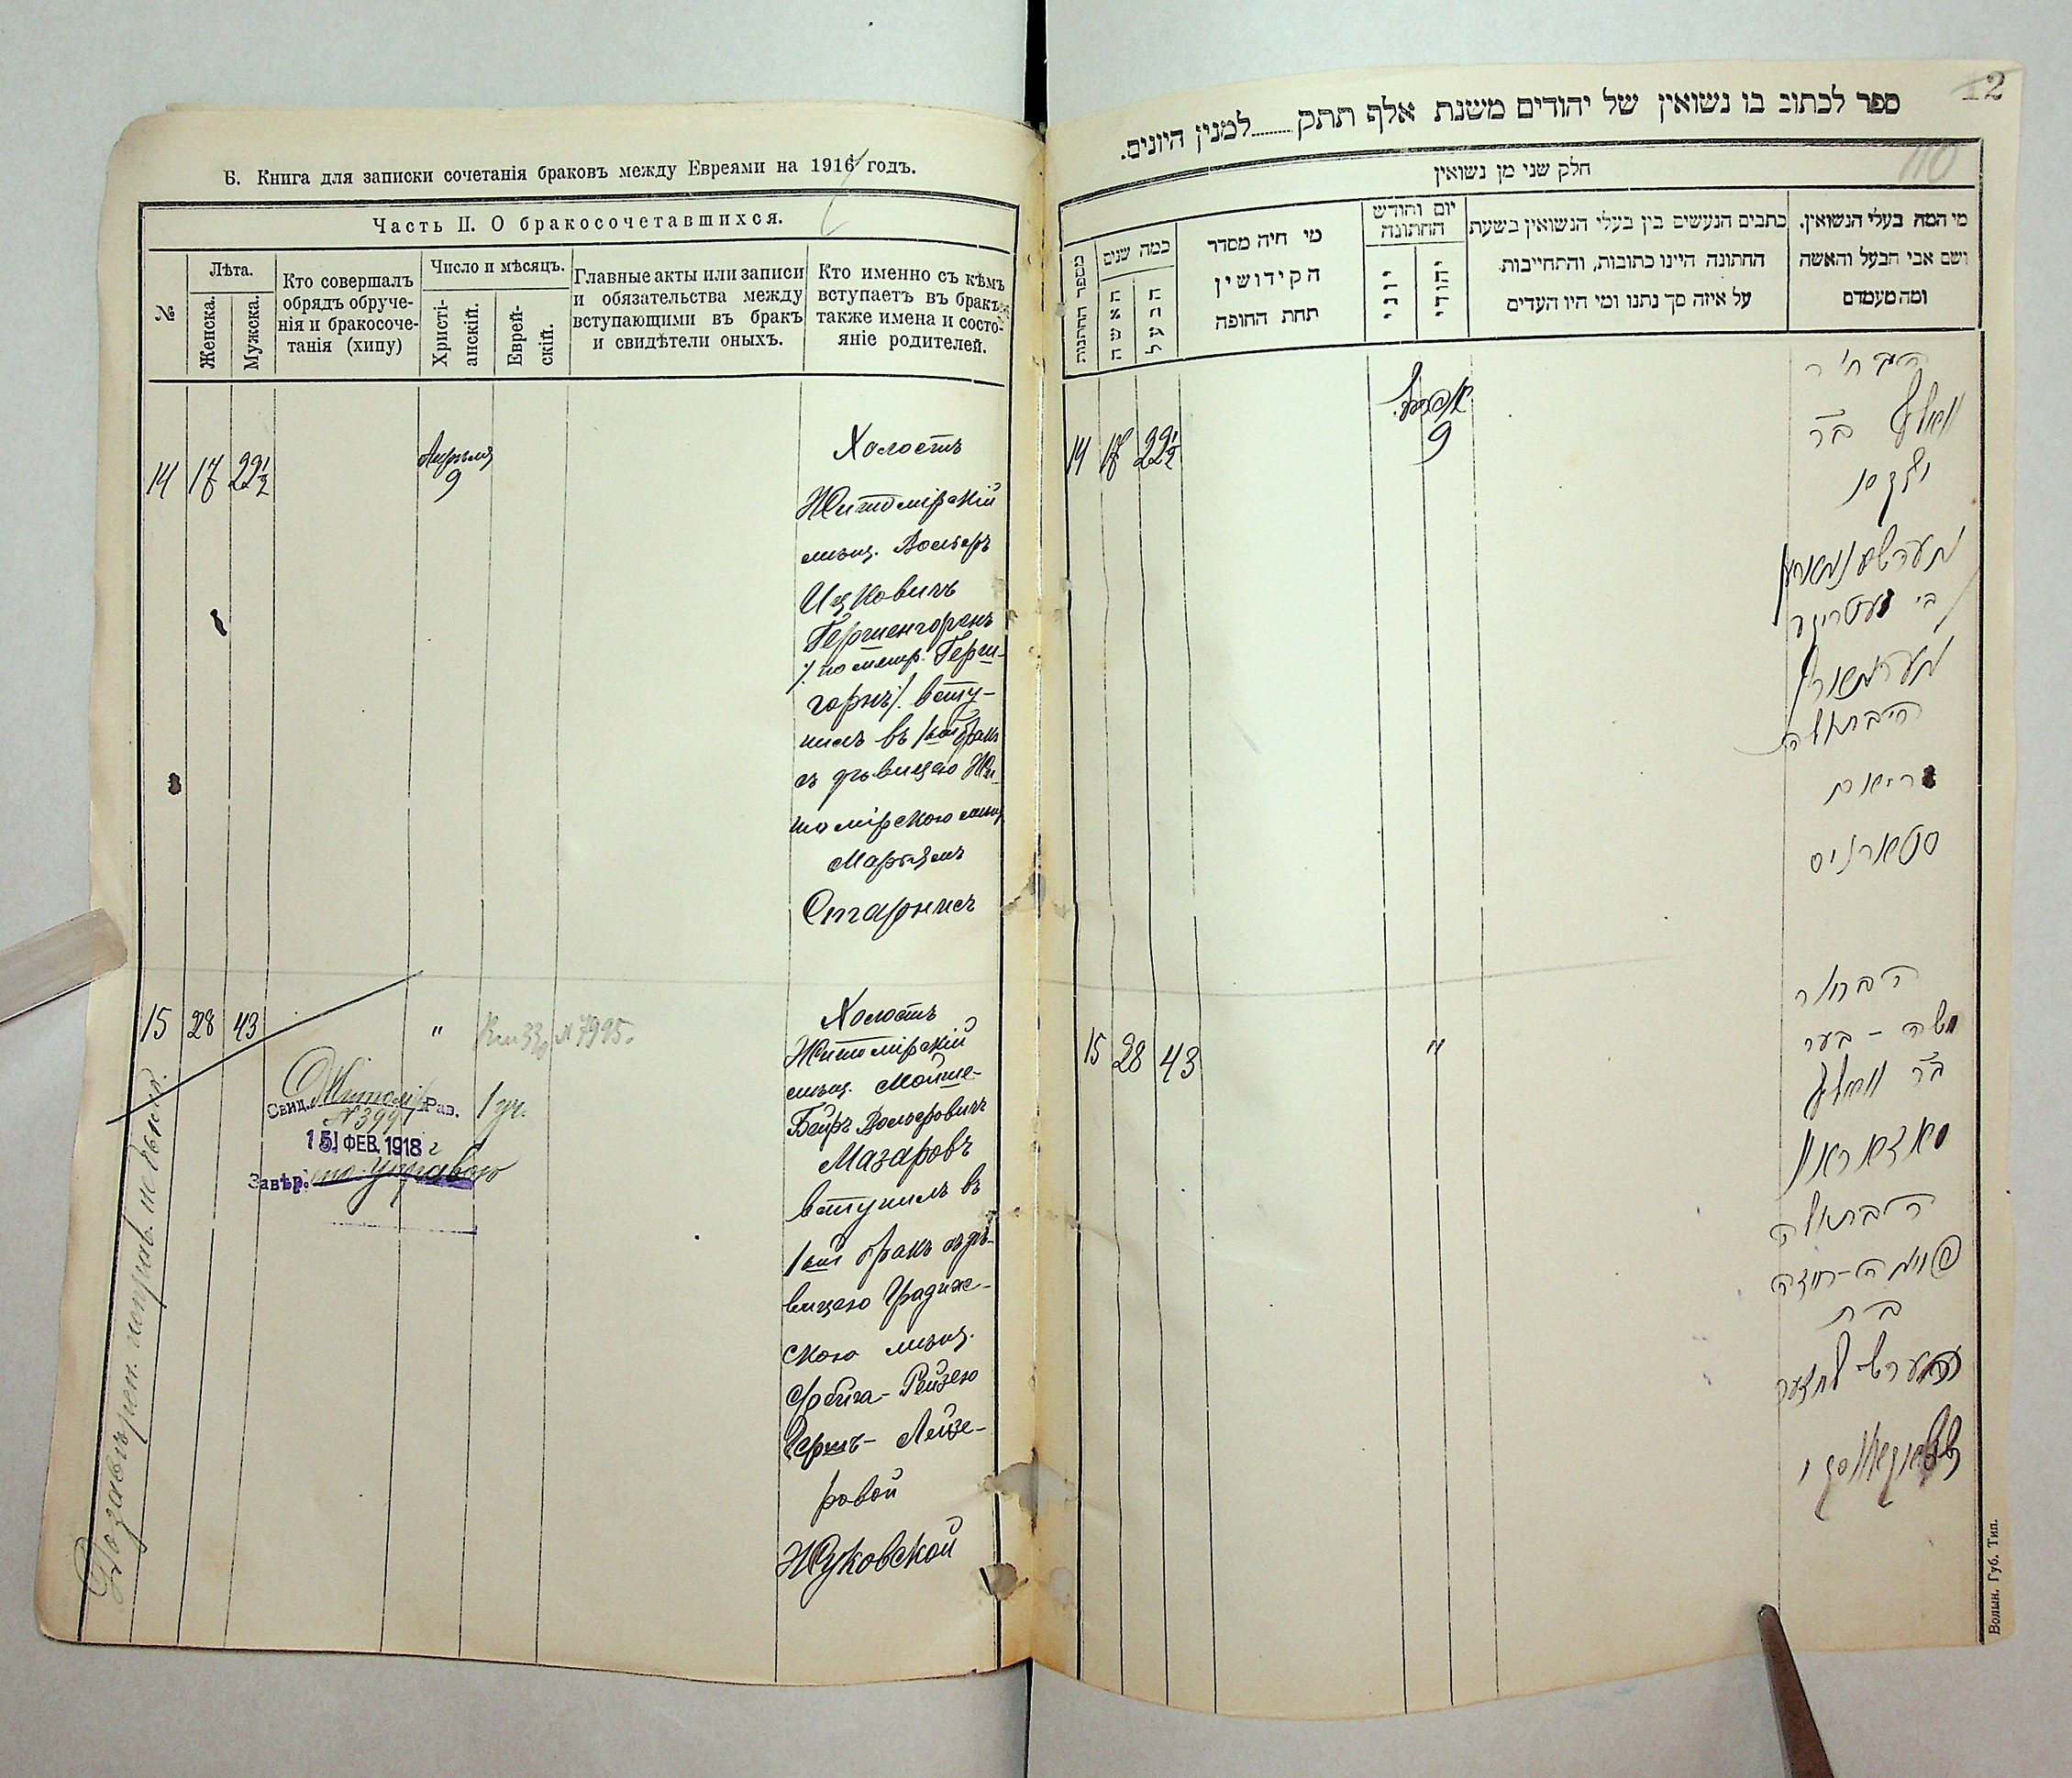 Б. Книга для записки сочетанія браковъ между Евреями на 1916 годъ.
Часть II. О бракосочетавшихся.
№
Лѣта.
Женска.
Мужска.
Кто совершалъ
обрядъ обруче-
нія и бракосоче-
танія (хипу)
Число и мѣсяцъ.
Христі-
анскій.
Еврей-
скій.
Главные акты или записи
и обязательства между
вступающими въ бракъ
и свидѣтели оныхъ.
Кто именно съ кѣмъ
вступаетъ въ бракъ,
также имена и состо-
яніе родителей.
14 17 22½
Апрѣля
9
Холостъ
Житомірскій
мѣщ. Вольфъ
Ицковичъ
Гершенгоренъ
/. по метр. Герш-
горнъ/. всту-
пилъ въ 1ый бракъ
съ дѣвицею Жи-
томірскою мѣщ.
Старнисъ
15 28 43
"
№ 7995.
Свид. Житомір. Рав.
№ 399
15 ФЕВ. 1918 г
Завѣр.
Холостъ
Житомірскій
мѣщ. Мойше-
Беръ Вольфовичъ
Мазаровъ
вступилъ въ
1ый бракъ съ дѣ-
вицею Градиж-
скою мѣщ.
Фейга-Рейзею
Гершъ-Лейзе-
ровой
Жуковской
12
110
ספר לכתוב בו נשואין של יהודים משנת אלף תתק........למנין היונים.
חלק שני מן נשואין
מספר החתנות
כמה שנים
האשה
הבעל
מי היה מסדר
הקידושין
תחת החופה
יום וחודש
החתונה
יוני
יהודי
כתבים הנעשים בין בעלי הנשואין בשעת
החתונה היינו כתובות, והתחייבות
על איזה סך נתנו ומי היו העדים
מי המה בעלי הנשואין.
ושם אבי הבעל והאשה
ומה מעמדם
14 17 22½
9
וואלף בר
הבתולה
סטארניס
15 28 43
"
הבחור
משה - בער
בר וואלף
מאזאראוו
הבתולה
פייגה-רייזה
בת
הערש לייזער
Волын. Губ. Тип.